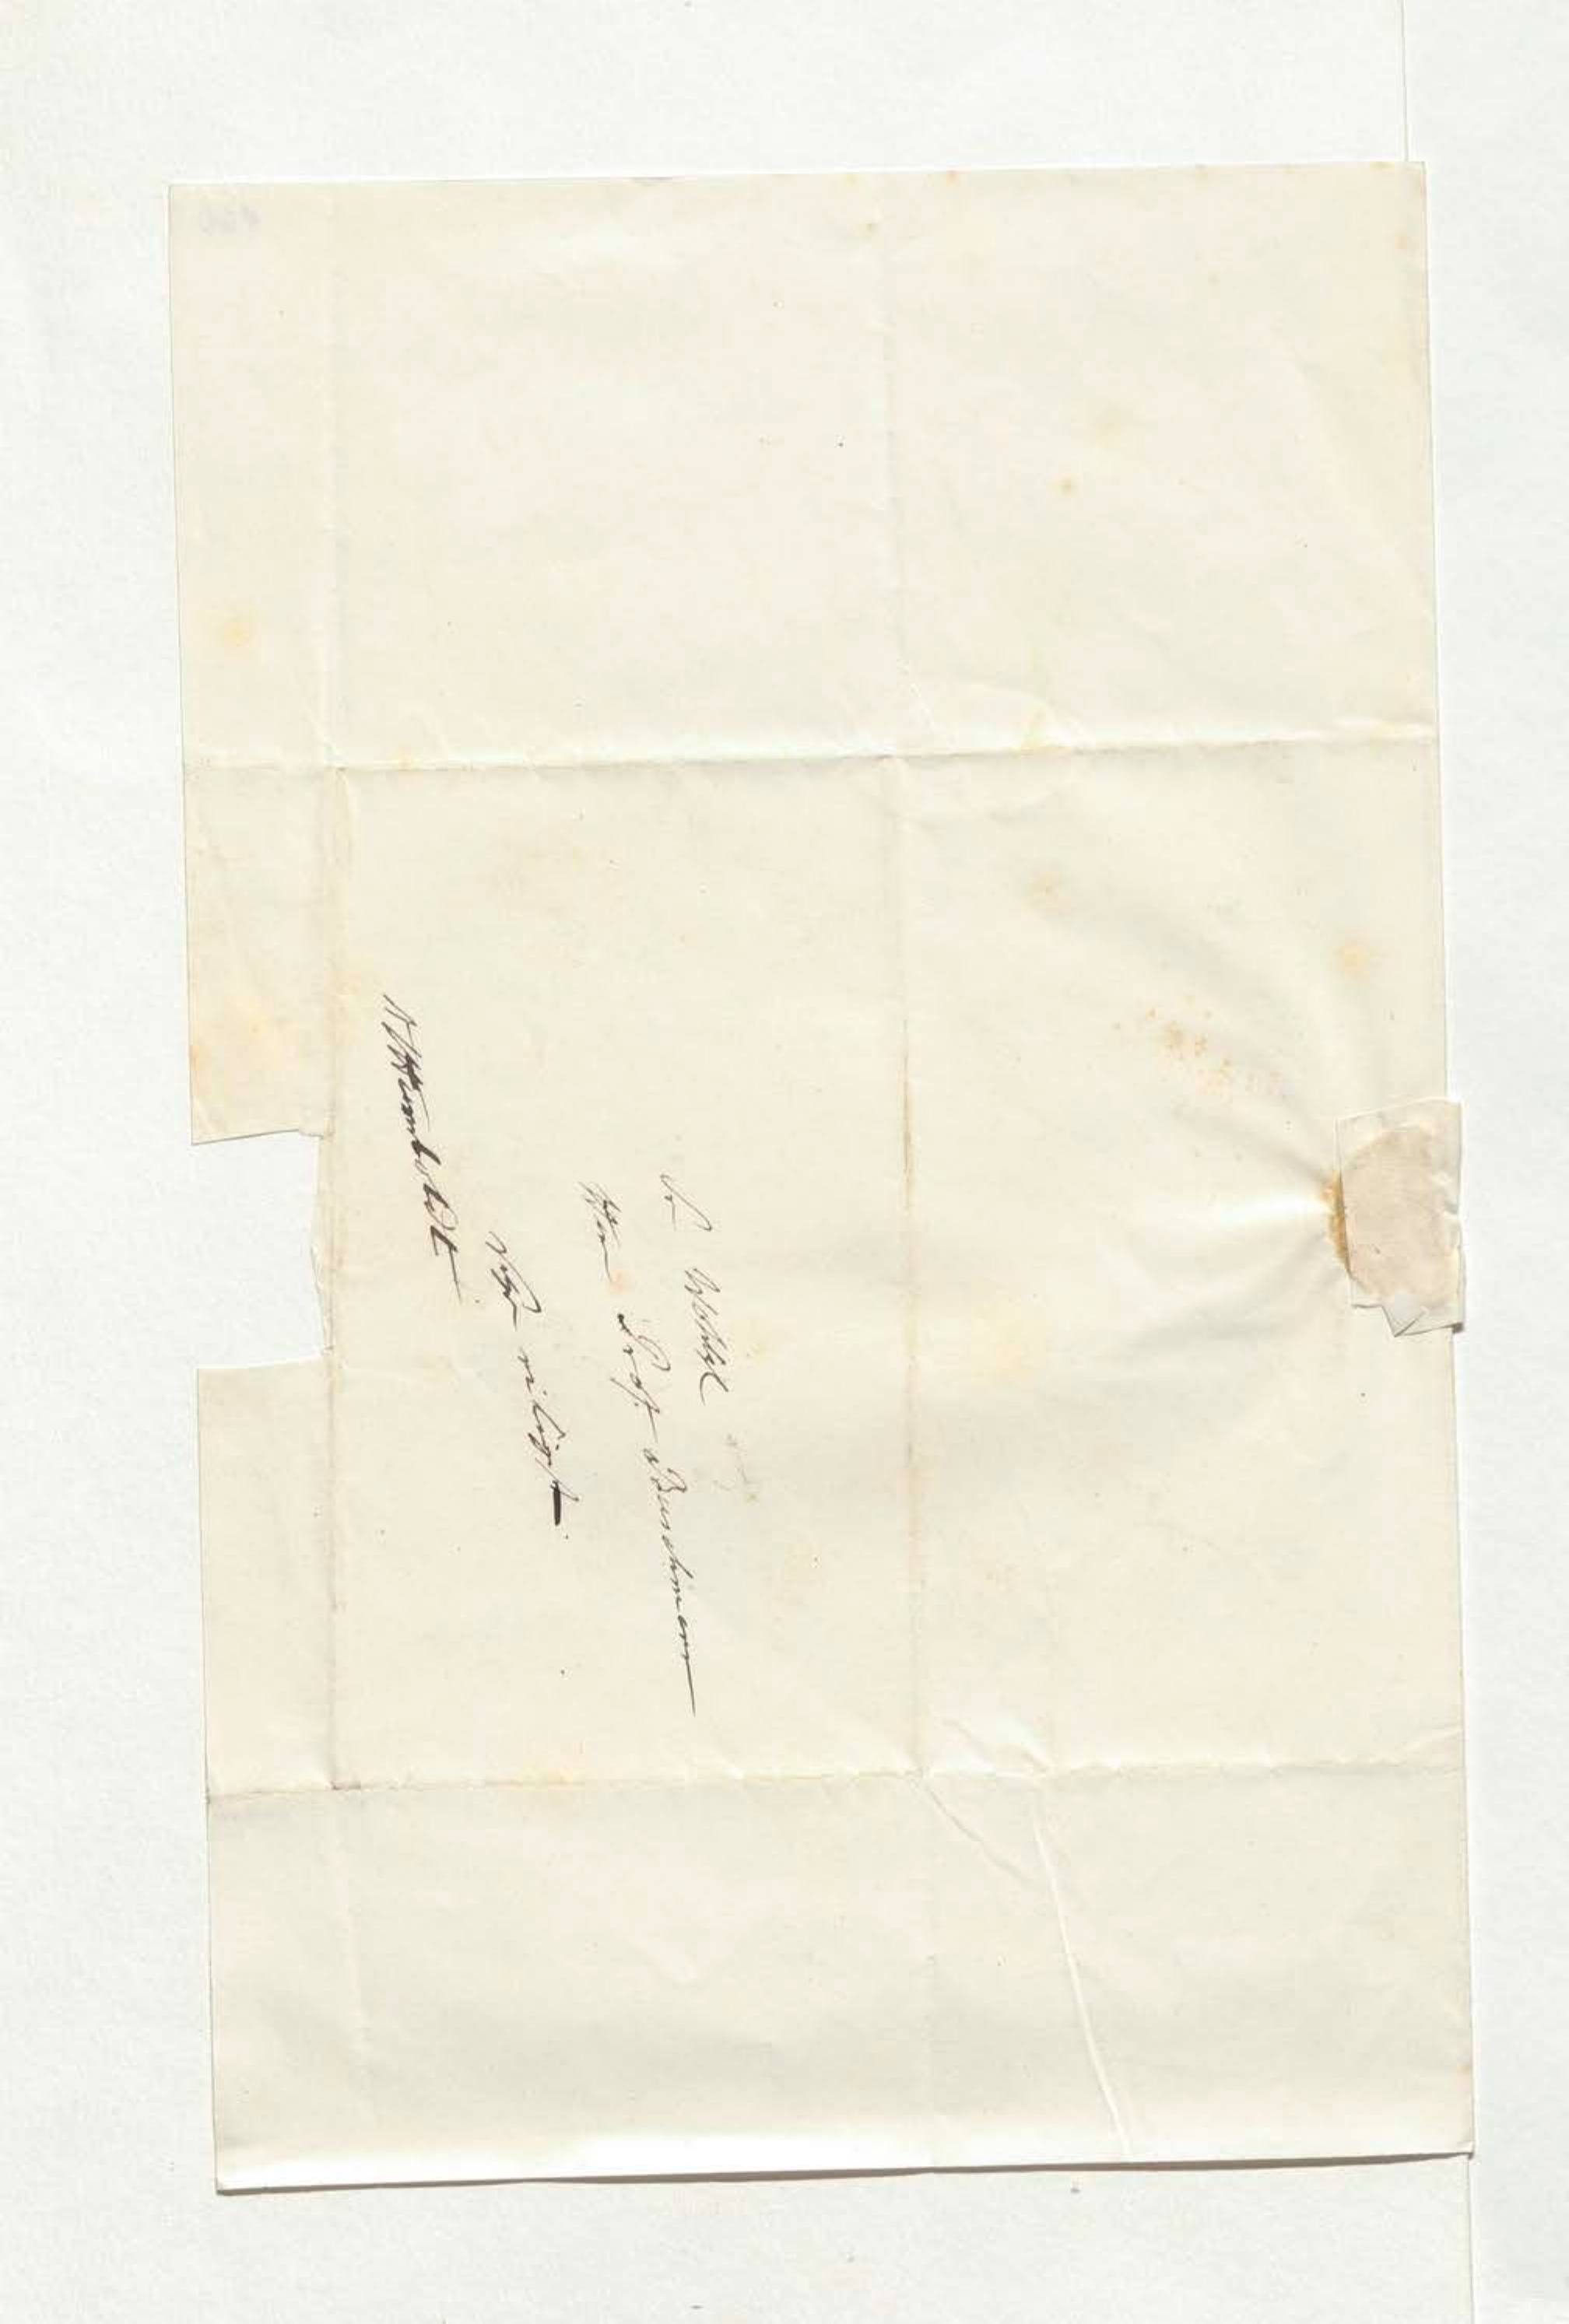 Sr Wohlgb
Hrn Prof. Buschmann
sehr eiligst
AvHumboldt